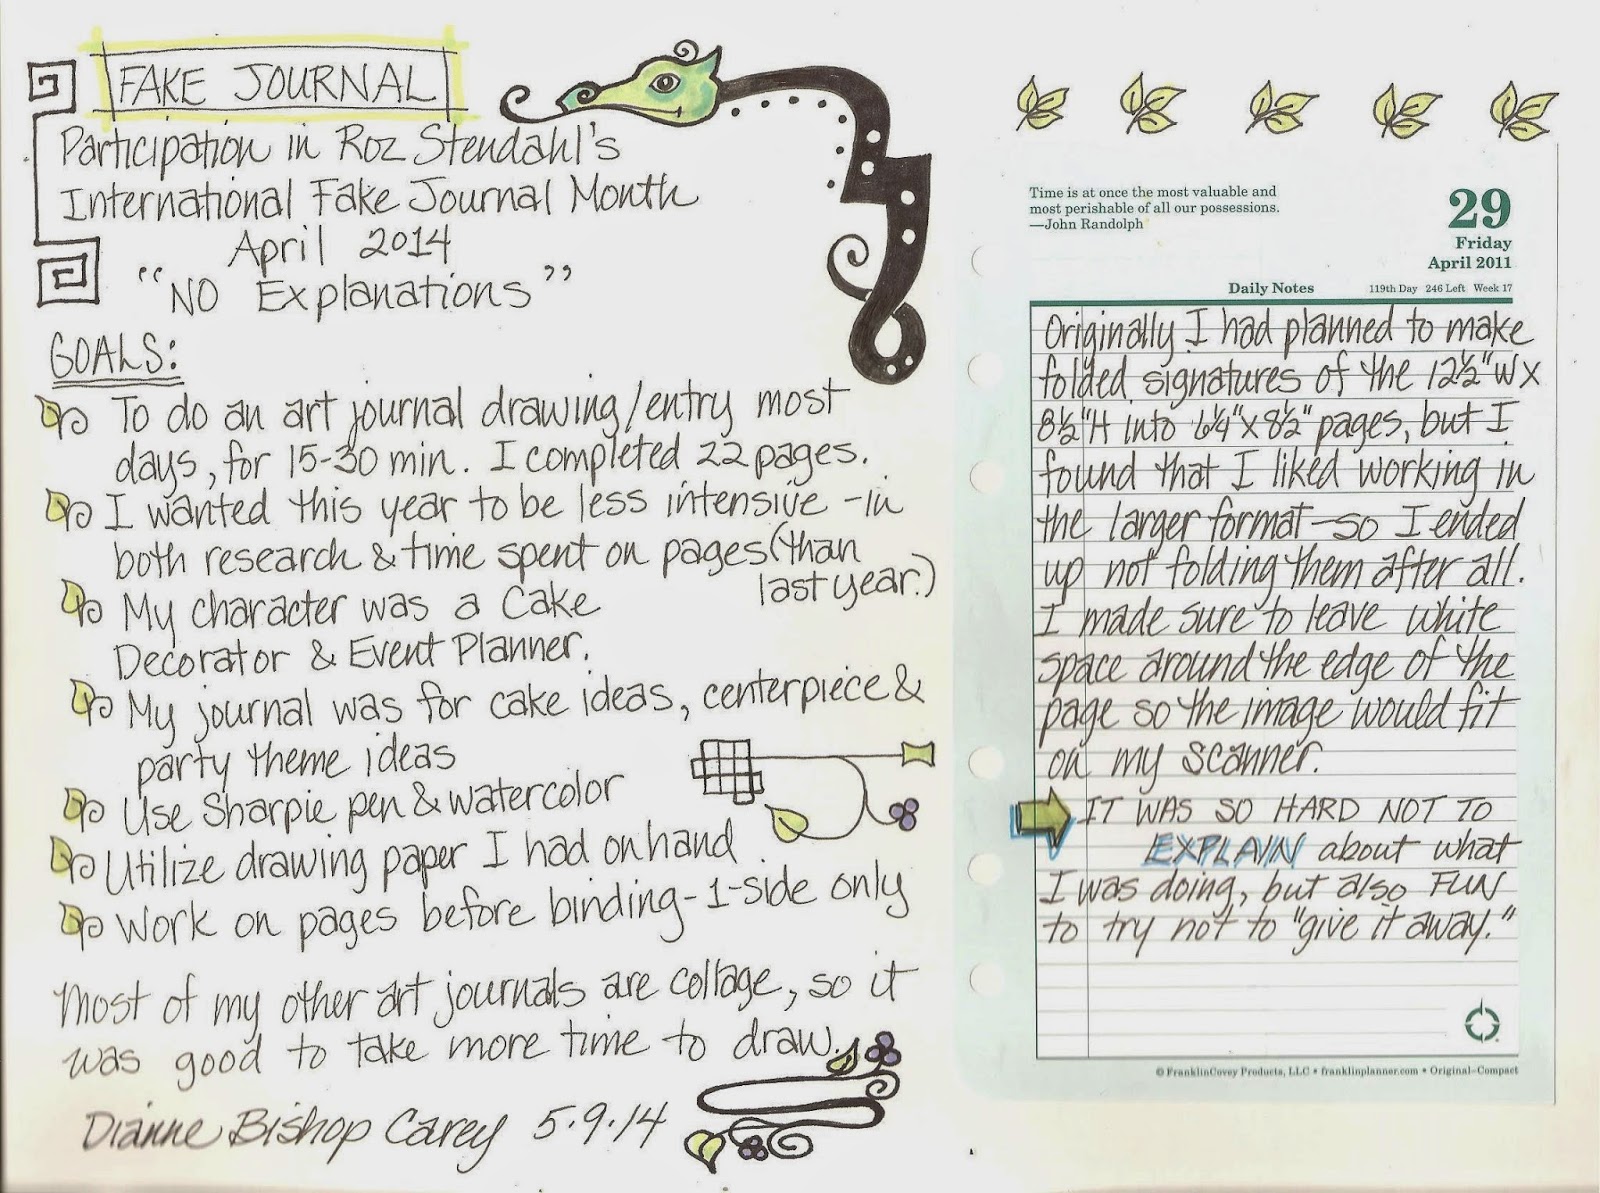 FAKE JOURNAL
Participation in Roz Stendahl's
International Fake Journal Month
April 2014
"NO Explanations"
GOALS:
To do an art journal drawing/entry most
days, for 15-30 min. I completed 22 pages.
I wanted this year to be less intensive - in
both research & time spent on pages (than
last year.)
My character was a Cake
Decorator & Event Planner.
My journal was for cake ideas, centerpiece &
party theme ideas
Use Sharpie pen & watercolor
Utilize drawing paper I had on hand
Work on pages before binding - 1-side only
Most of my other art journals are collage, so it
was good to take more time to draw.
Dianne Bishop Carey 5.9.14
Time is at once the most valuable and
most perishable of all our possessions.
—John Randolph
29
Friday
April 2011
Daily Notes 119th Day 246 Left Week 17
Originally I had planned to make
folded signatures of the 12½"W x
8½"H into 6¼"x8½" pages, but I
found that I liked working in
the larger format - so I ended
up not folding them after all.
I made sure to leave white
space around the edge of the
page so the image would fit
on my scanner.
IT WAS SO HARD NOT TO
EXPLAIN about what
I was doing, but also FUN
to try not to "give it away."
© FranklinCovey Products, LLC • franklinplanner.com • Original–Compact